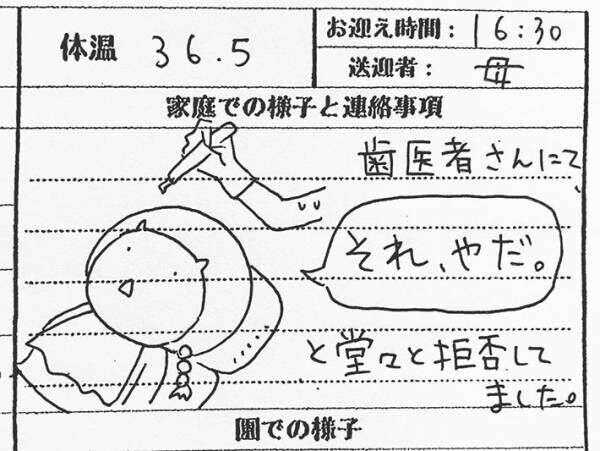 体温 36.5
お迎え時間: 16:30
送迎者: 母
家庭での様子と連絡事項
歯医者さんにて、
それ、やだ。
と堂々と拒否して
ました。
園での様子